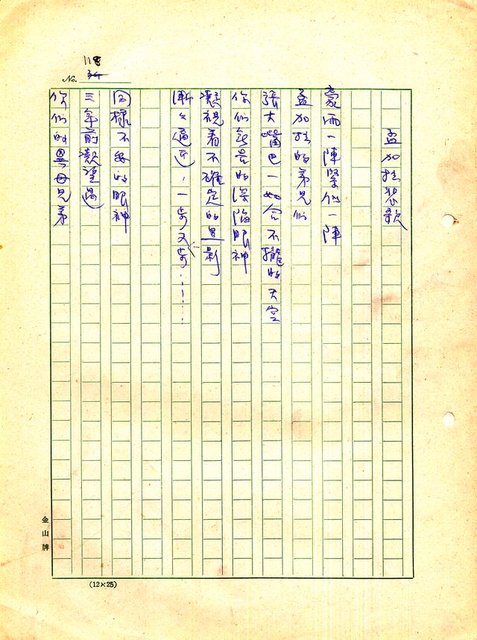 No. 118
34
孟加拉悲歌
豪雨一陣緊似一陣
孟加拉的弟兄們
張大嘴巴一如合不攏的天空
你們飢餓的深陷眼神
凝視着不確定的黑影
漸漸逼近,一步又一步……
同樣不安的眼神
三年前凝望過
你們的異母兄弟
金山牌
(12×25)